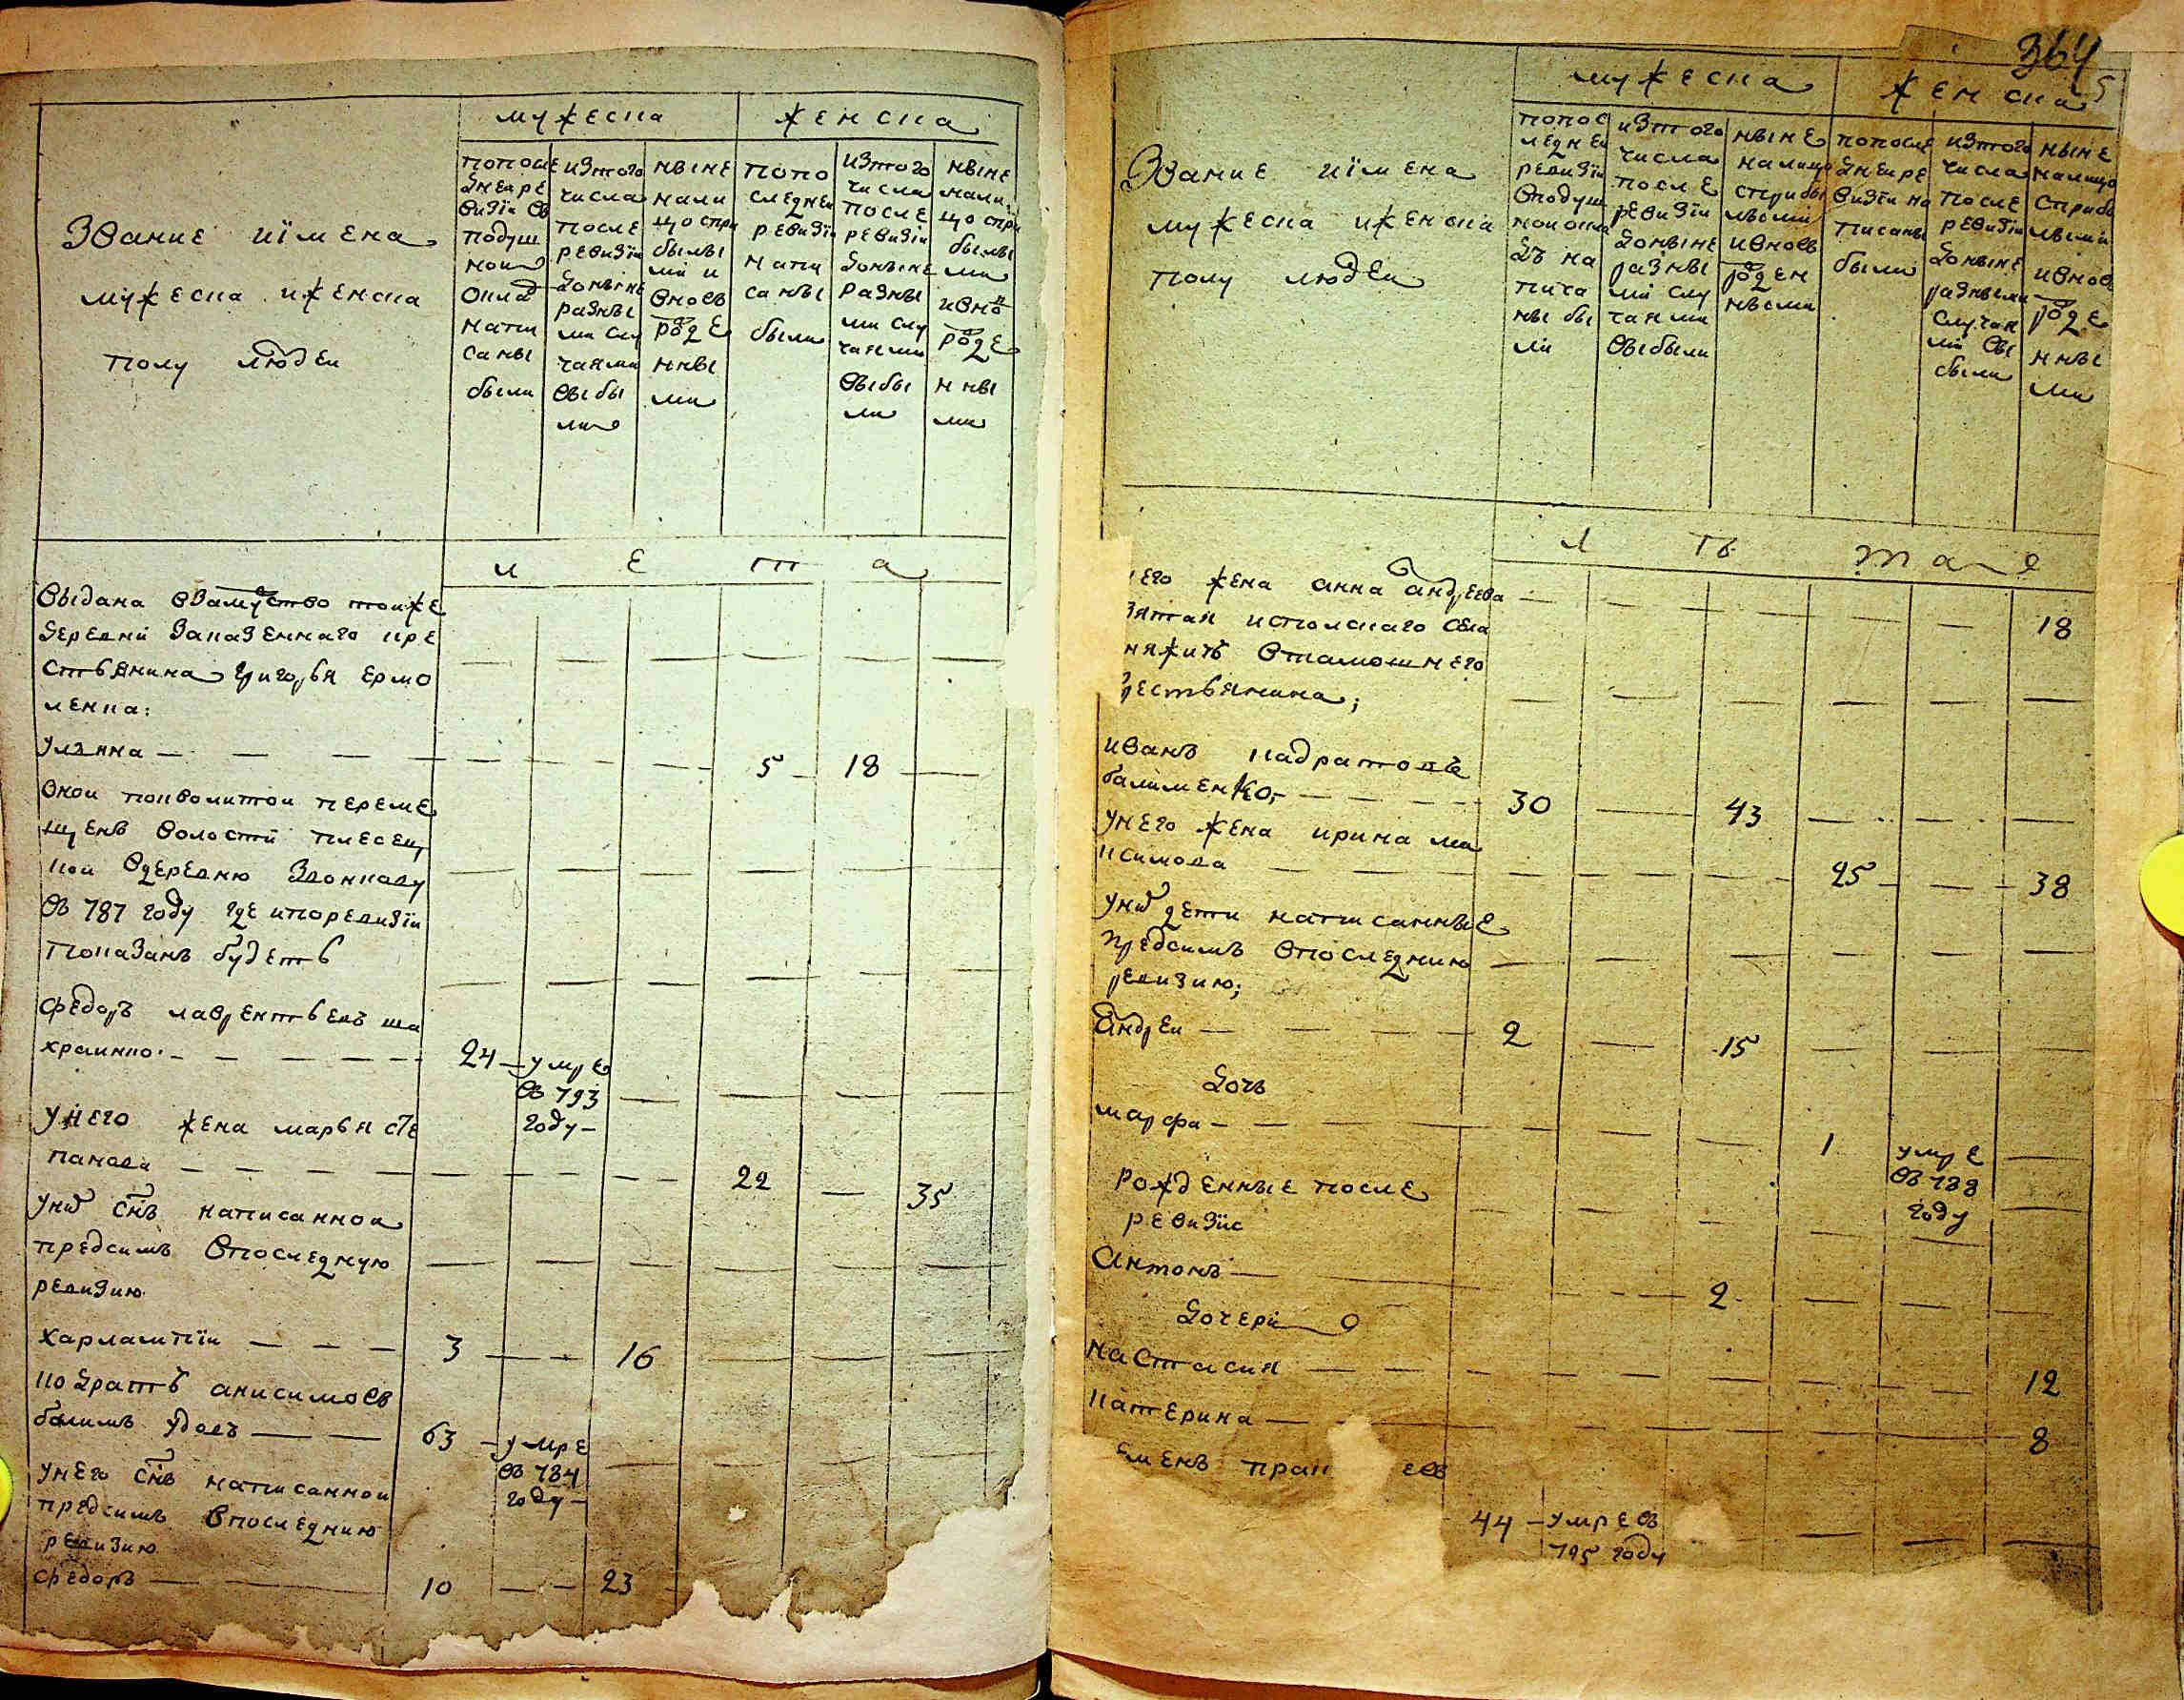 364
5
мужеска
женска
Звание иїмена
мужеска иженска
полу людеи
попосле
днеи ре
визїи въ
подуш
нои
оклад
напи
саны
были
изтого
числа
после
ревизїи
доныне
разны
ми слу
чаями
выбы
ли
ныне
нали
цо спри
былы
ми и
вновь
роде
нны
ми
попо
следнеи
ревизїи
напи
саны
были
изтого
числа
после
ревизїи
доныне
разны
ми слу
чаями
выбы
ли
ныне
нали
цо спри
былы
ми
ивно
роде
нны
ми
лета
выдана взамуство тоиже
деревни Заказенного кре
стьянина григорья ермо
ленка:
улянa 5 18
Онои покволитои переме
щенъ волости плесец
кои вдеревню Звонкову
въ 787 году где ипоревизїи
показанъ будеть
федоръ лаврентьевъ ша
храинко 24 умре
въ 793
году
унего жена марья сте
панова 22 35
уних снъ написаннои
предсимъ впоследную
ревизию
харлампїи 3 16
кодратъ анисимовъ
балимъ удовъ 63 умре
въ 784
году
унего снъ написаннои
предсимъ впоследнию
ревизию
федоръ 10 23
мужеска
женска
Звание иїмена
мужеска иженска
полу людеи
попос
леднеи
ревизїи
вподуш
ном окла
дъ на
писа
ны бы
ли
изтого
числа
после
ревизїи
доныне
разны
ми слу
чаями
выбыли
ныне
налицо
сприбы
лыми
ивновь
роден
ными
попосле
днеи ре
визїи на
писаны
были
изтого
числа
после
ревизїи
доныне
разными
случая
ми вы
были
ныне
налицо
сприбы
лыми
ивнов
роде
нны
ми
него жена анна андреева 18
взятая
втамошнего
крестьянина;
иванъ кадратовъ
балименко 30 43
унего жена ирина ма
ксимова 25 38
уних дети написанные
предсимъ впоследнию
ревизию;
андреи 2 15
дочь
марфа 1 умре
въ 788
году
рожденные после
ревизїи
антонъ 2
дочери
настасия 12
катерина 8
44 умре въ
795 году